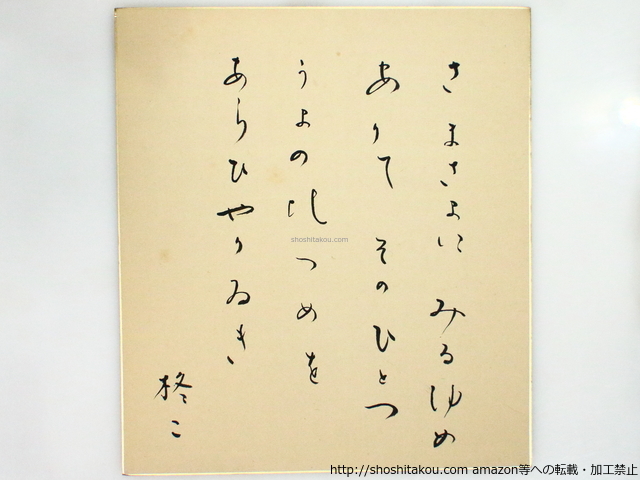 さまさまに みるゆめ
ありて そのひとつ
うまのひつめを
あらひやりゐき
柊二
shoshitakou.com
http://shoshitakou.com amazon等への転載・加工禁止